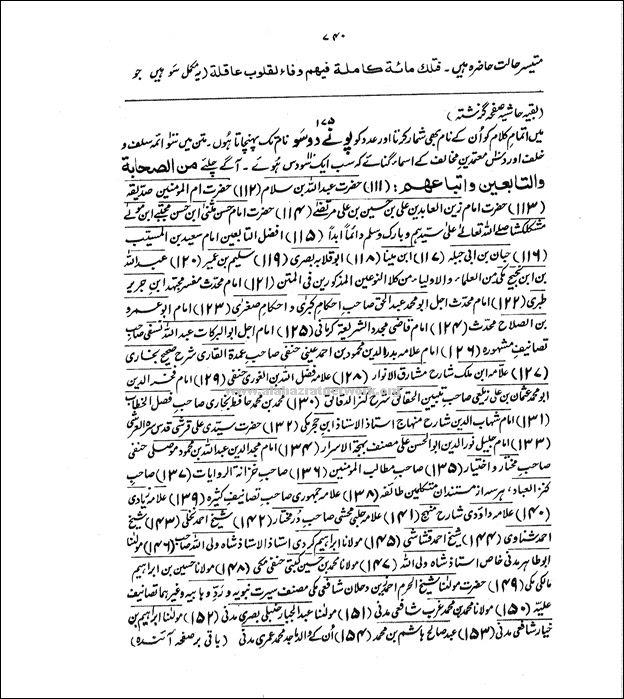 ۷۴۰
متیسر حالت حاضرہ ہیں۔ فتلك مائة كاملة فيهم وفاء لقلوب عاقلة (یہ مکمل سو ہیں جو
(بقیہ حاشیہ صفحہ گزشتہ)
۱۷۵
میں اتمامِ کلام کو اُن کے نام بھی شمار کرتا اور عدد کو پونے دو سو نام تک پہنچاتا ہوں۔ متن میں سو ائمہ سلف و
خلف اور دس معتمدین مخالف کے اسماء گنائے کہ سب ایک سو دس ہوئے۔ آگے چلئے من الصحابة
والتابعين واتباعهم : (۱۱۱) حضرت عبداللہ بن سلام (۱۱۲) حضرت ام المومنین صدیقہ
(۱۱۳) حضرت امام زین العابدین علی بن حسین بن علی مرتضٰی (۱۱۴) حضرت امام حسن مثنٰی ابن حسن مجتبٰی ابن مولٰی
مشکلکشا صلے اللہ تعالٰی علٰی سیدہم وبارک وسلم دائماً ابداً (۱۱۵) افضل التابعین امام سعید بن المسیّب
(۱۱۶) حبان بن ابی جبلہ (۱۱۷) ابن مینا (۱۱۸) ابوقلابہ بصری (۱۱۹) سلیم بن عمیر (۱۲۰) عبداللہ
بن ابی نجیح مکی من العلماء والاولیاء من کلا النوعین المذکورین فی المتن (۱۲۱) امام محدث مفسر مجتہد ابن جریر
طبری (۱۲۲) امام محدث اجل ابو محمد عبدالحق صاحبِ احکامِ کبرٰی و احکام صغرٰی (۱۲۳) امام ابو عمرو
بن الصلاح محدث (۱۲۴) امام قاضی مجدد الشریعۃ کرمانی (۱۲۵) امام اجل ابوالبرکات عبداللہ نسفی صاحبِ
تصانیفِ مشہورہ (۱۲۶) امام علامہ بدرالدین محمود بن احمد عینی حنفی صاحبِ عمدۃ القاری شرح صحیح بخاری
(۱۲۷) علامہ ابن ملک شارح مشارق الانوار (۱۲۸) علامہ فضل اللہ بن الغوری حنفی (۱۲۹) امام فخرالدین
ابو محمد عثمان بن علی زیلعی صاحبِ تبیین الحقائق شرح کنز الدقائق (۱۳۰) محمد بن محمد حافظ بخاری صاحبِ فصل الخطاب
(۱۳۱) امام شہاب الدین شارح منہاج استاذ الاستاذ ابن حجر مکی (۱۳۲) حضرت سیدی علی قرشی قدس سرہ العرشی
(۱۳۳) امام جلیل نور الدین ابوالحسن علی مصنف بہجۃ الاسرار (۱۳۴) امام مجدالدین عبداللہ بن محمود موصلی حنفی
صاحبِ مختار و اختیار (۱۳۵) صاحبِ مطالب المومنین (۱۳۶) صاحبِ خزانۃ الروایات (۱۳۷) صاحبِ
کنز العباد، ہر سہ از مستندانِ متکلمین طائفہ (۱۳۸) علامہ جمہوری صاحبِ تصانیف کثیرہ (۱۳۹) علامہ زیادی
(۱۴۰) علامہ داؤدی شارح منہج (۱۴۱) علامہ حلبی محشی صاحبِ درمختار (۱۴۲) شیخ احمد نخلی (۱۴۳) شیخ
احمد شناوی (۱۴۴) شیخ احمد قشاشی (۱۴۵) مولانا ابراہیم کردی استاذ الاستاذ شاہ ولی اللہ صاحب (۱۴۶) مولٰنا
ابو طاہر مدنی خاص استاذ شاہ ولی اللہ (۱۴۷) مولانا محمد بن حسین کتبی حنفی مکی (۱۴۸) مولانا حسین بن ابراہیم
مالکی مکی (۱۴۹) حضرت مولٰنا شیخ الحرم احمد زین دحلان شافعی مکی مصنف سیرت نبویہ و ردِّ وہابیہ وغیرہما تصانیف
علیّہ (۱۵۰) مولانا محمد بن محمد غرب شافعی مدنی (۱۵۱) مولٰنا عبدالجبار حنبلی بصری مدنی (۱۵۲) مولٰنا ابراہیم بن
خیار شافعی مدنی (۱۵۳) عبدصالح ہاشم بن محمد (۱۵۴) اُن کے والد ماجد محمد عمری مدنی (باقی بر صفحہ آئندہ)
www.alahazratnetwork.org